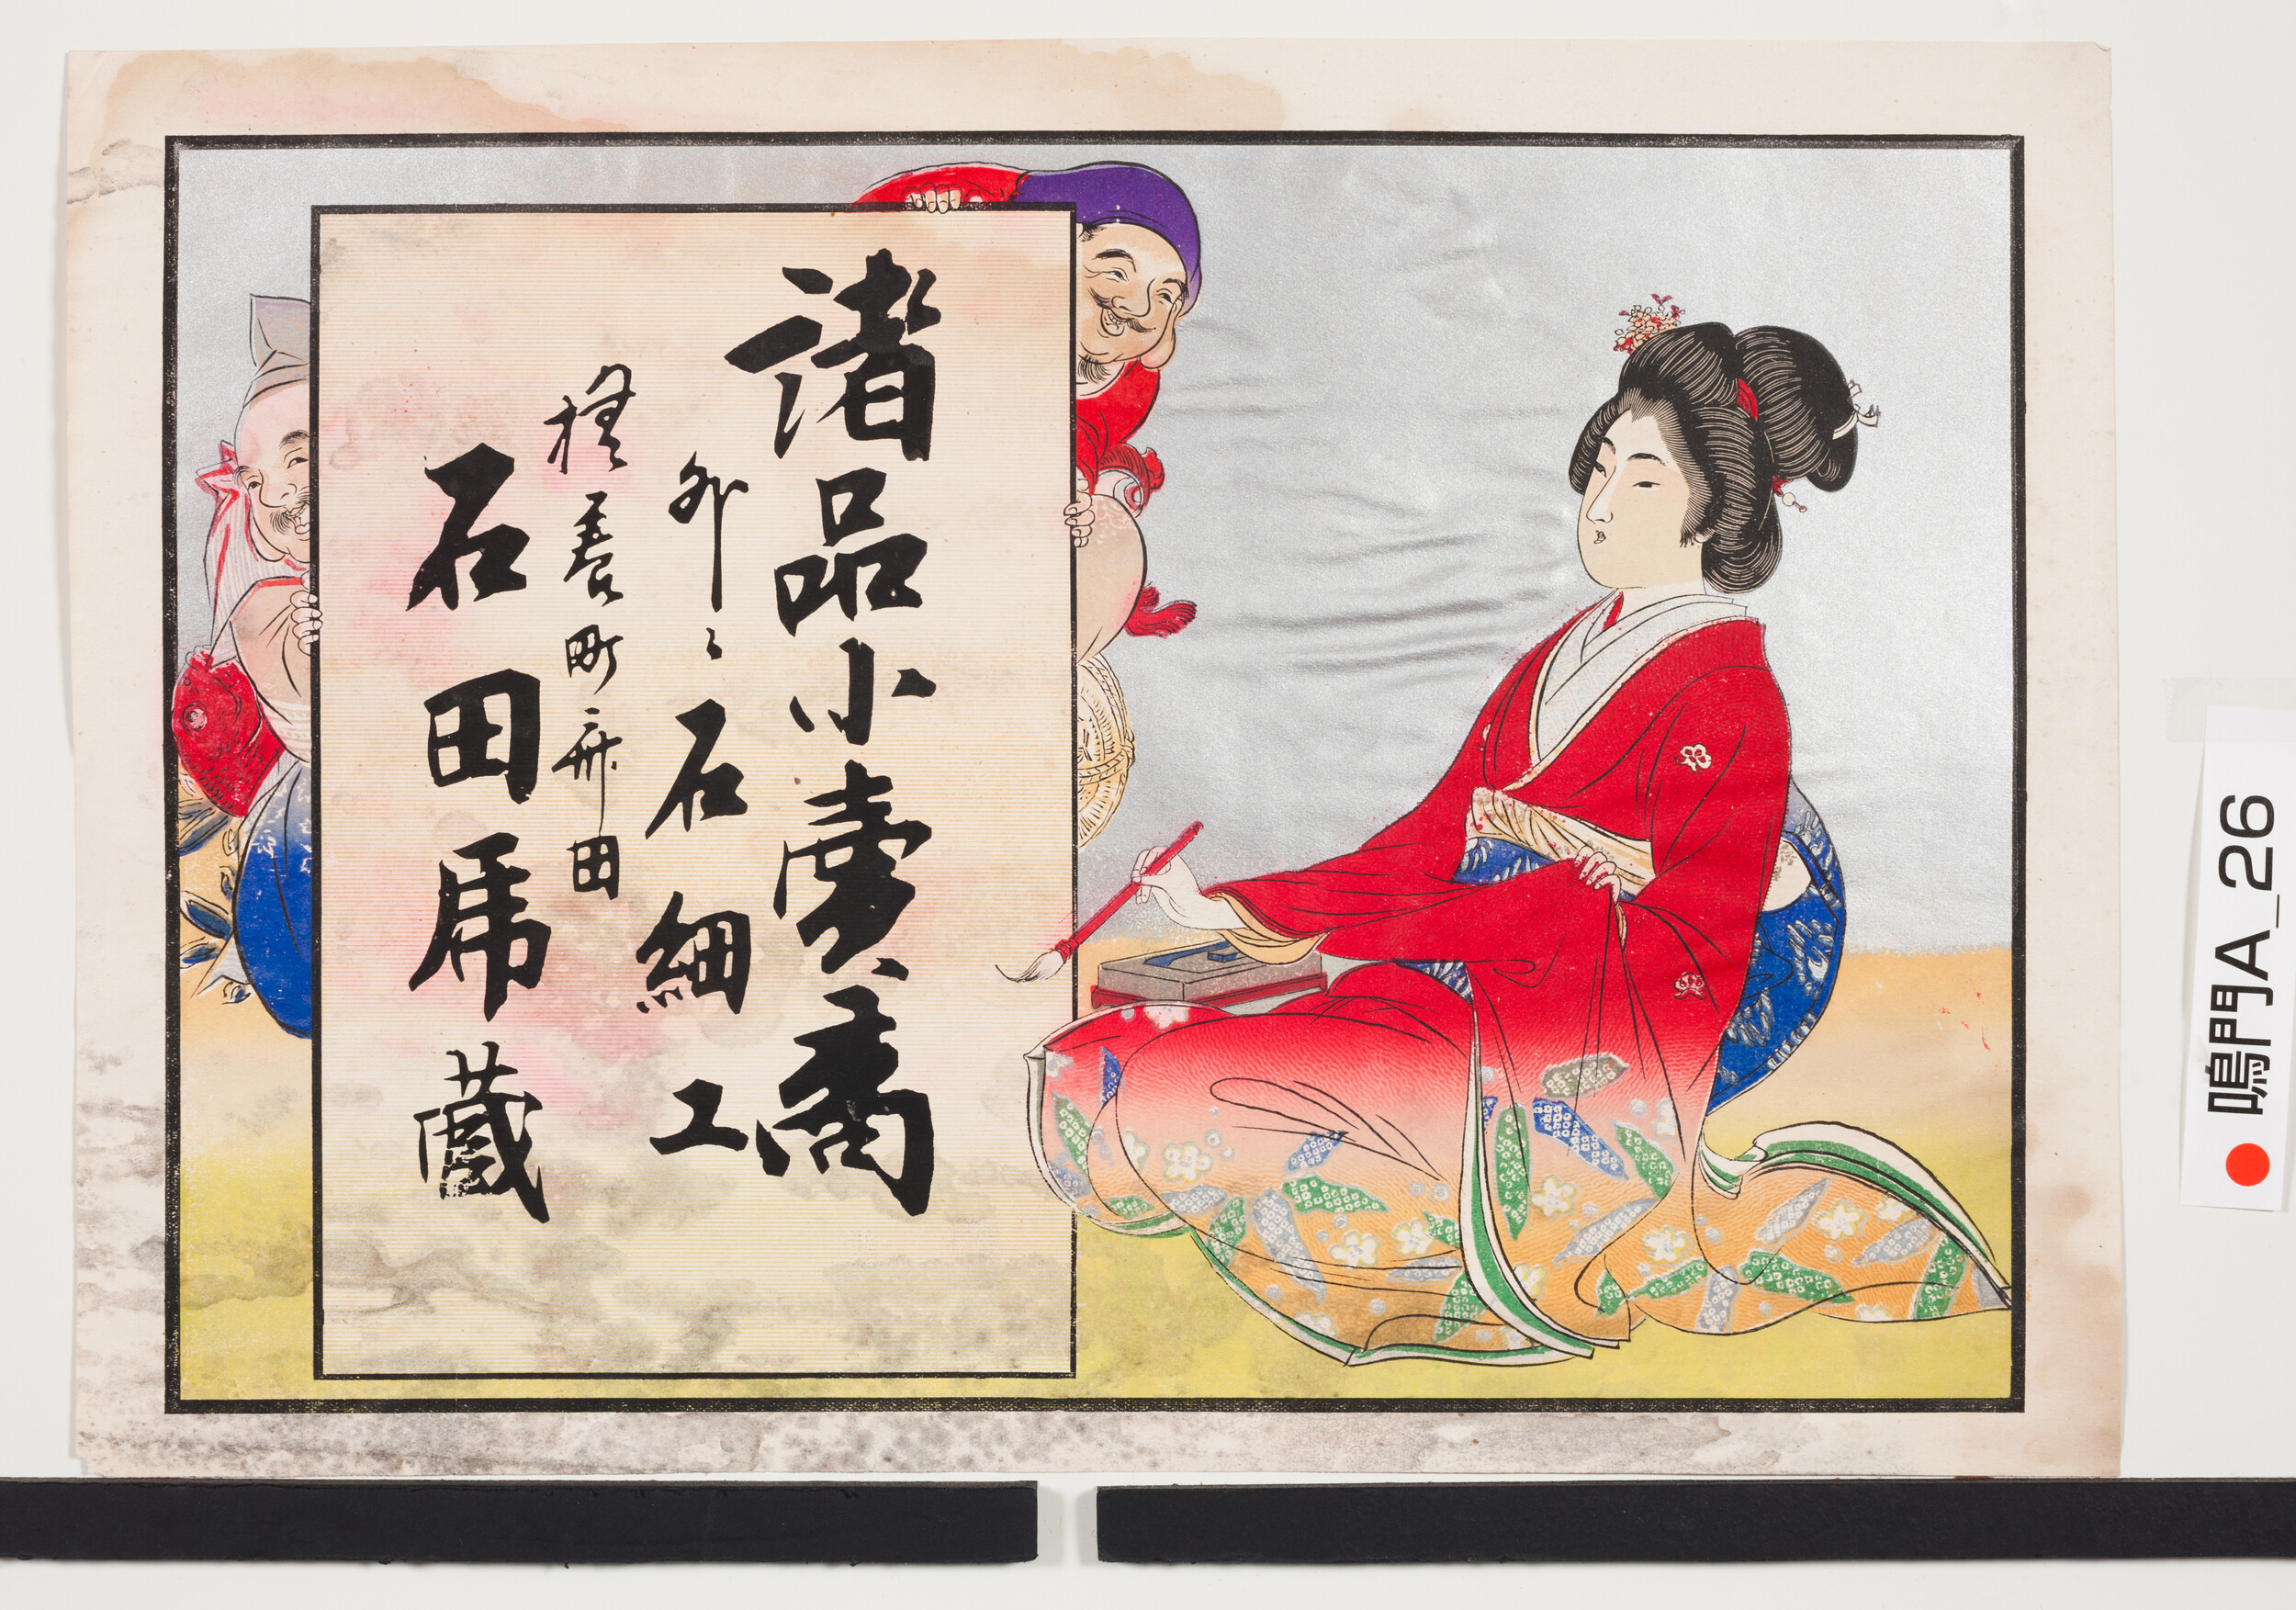 諸品小賣商
外ニ石細工
養町
田
石田席蔵
鳴門A_26